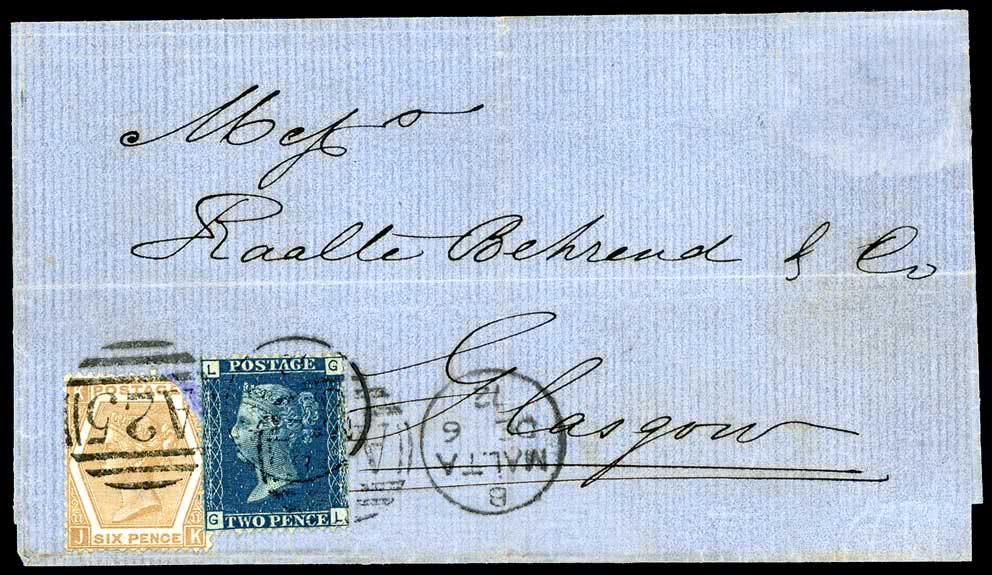 Messrs
Raalte Behrend & Co
Glasgow
POSTAGE
SIX PENCE
J K
A25
L G
POSTAGE
TWO PENCE
G L
B
MALTA
DE 6
72